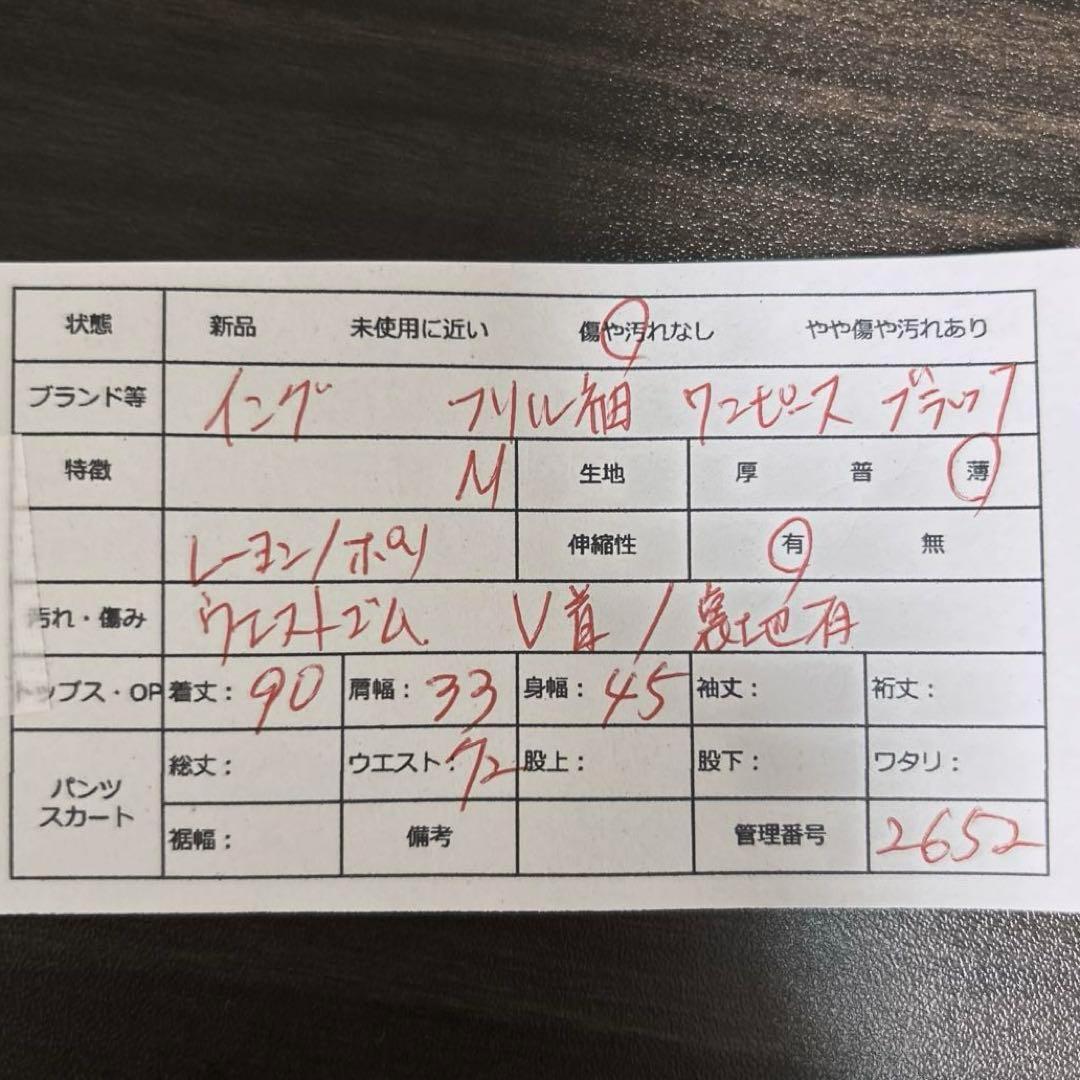 状態 新品 未使用に近い 傷や汚れなし やや傷や汚れあり
ブランド等 イング フリル袖 ワンピース ブラック
特徴 M 生地 厚 普 薄
レーヨン/ポリ 伸縮性 有 無
汚れ・傷み ウエストゴム V首/裏地有
トップス・OP 着丈: 90 肩幅: 33 身幅: 45 袖丈: 裄丈:
パンツ スカート 総丈: ウエスト: 72 股上: 股下: ワタリ:
裾幅: 備考 管理番号 2652